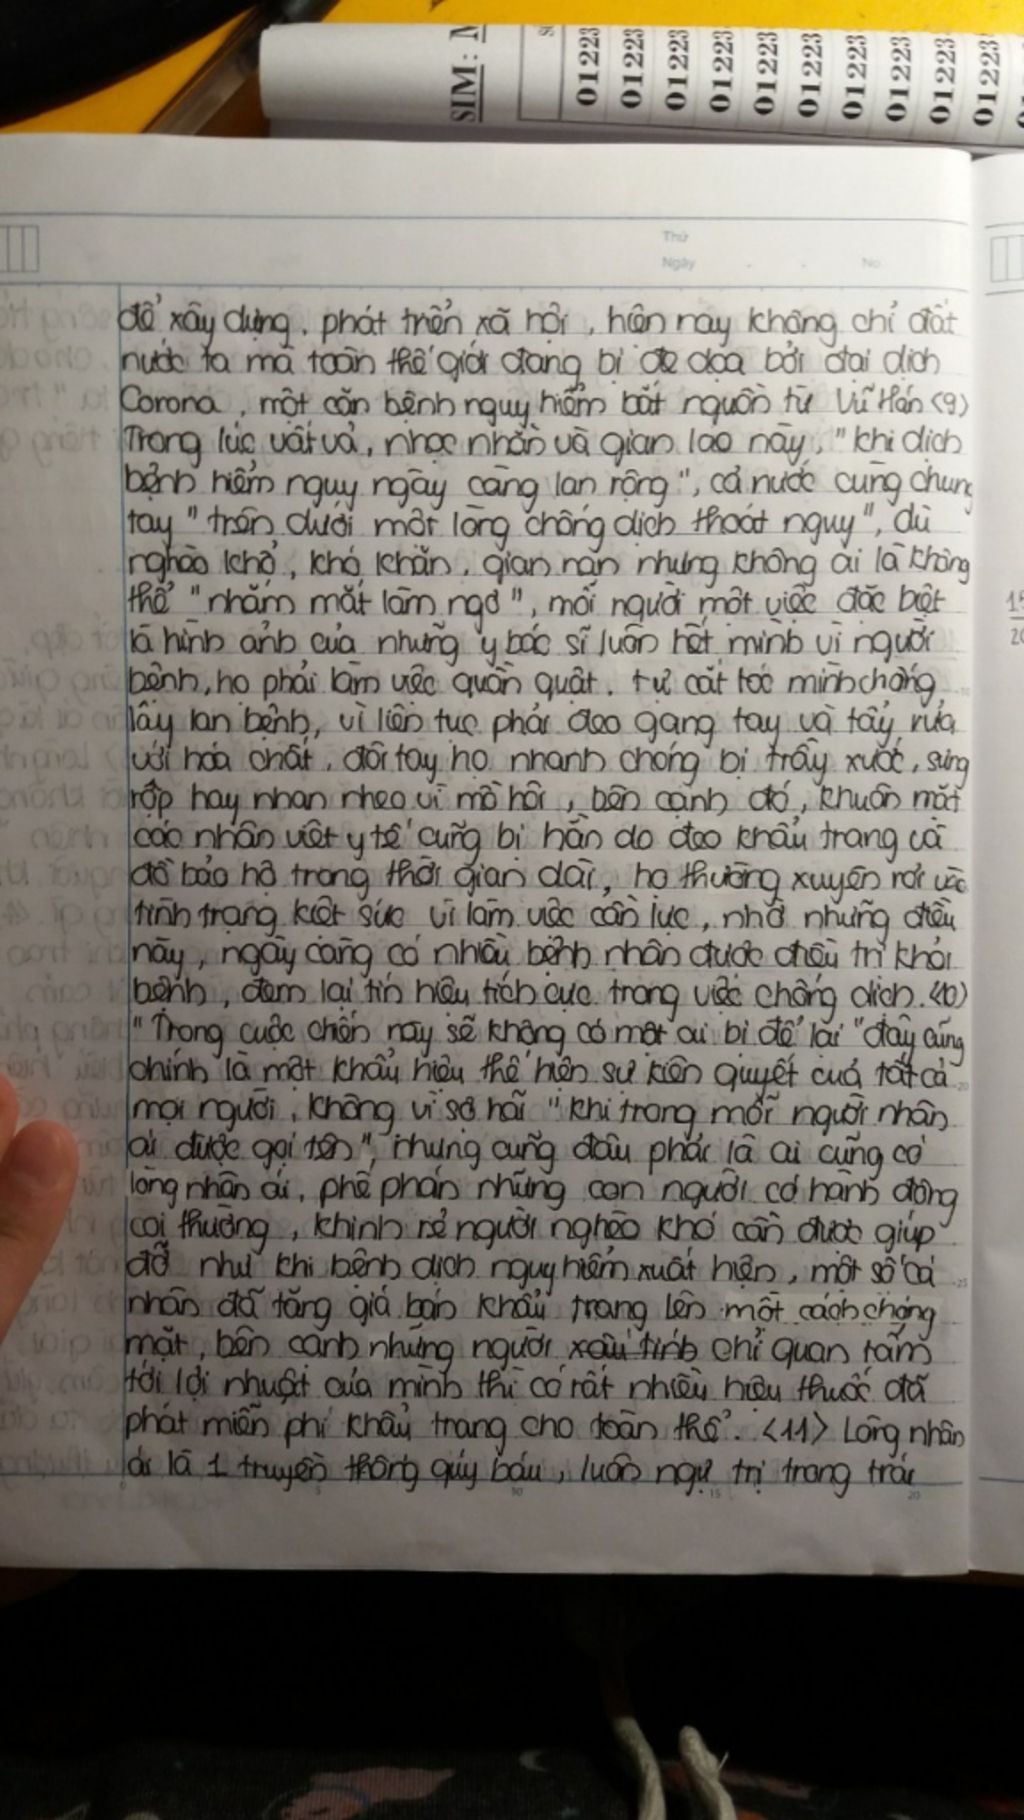 SIM: N
01223
01223
01223
01223
01223
01223
01223
01223
01223
01223
Thứ
Ngày . . No.
để xây dựng, phát triển xã hội, hiện nay không chỉ đất
nước ta mà toàn thế giới đang bị đe dọa bởi đại dịch
Corona, một căn bệnh nguy hiểm bắt nguồn từ Vũ Hán <9>
Trong lúc vất vả, nhọc nhằn và gian lao này, "khi dịch
bệnh hiểm nguy ngày càng lan rộng", cả nước cùng chung
tay "trên dưới một lòng chống dịch thoát nguy", dù
nghèo khổ, khó khăn, gian nan nhưng không ai là không
thể "nhắm mắt làm ngơ", mỗi người một việc đặc biệt
là hình ảnh của những y bác sĩ luôn hết mình vì người
bệnh, họ phải làm việc quần quật, tự cắt tóc mình chống
lây lan bệnh, vì liên tục phải đeo găng tay và tẩy rửa
với hóa chất, đôi tay họ nhanh chóng bị trầy xước, sưng
rộp hay nhăn nheo vì mồ hôi, bên cạnh đó, khuôn mặt
các nhân viêt y tế cũng bị hằn do đeo khẩu trang và
đồ bảo hộ trong thời gian dài, họ thường xuyên rơi vào
tình trạng kiệt sức vì làm việc cần lực, nhờ những điều
này, ngày càng có nhiều bệnh nhân được điều trị khỏi
bệnh, đem lại tín hiệu tích cực trong việc chống dịch. <10>
"Trong cuộc chiến này sẽ không có một ai bị để lại" đây cũng
chính là một khẩu hiệu thể hiện sự kiên quyết của tất cả
mọi người, không vì sợ hãi "khi trong mỗi người nhân
ái được gọi tên", nhưng cũng đâu phải là ai cũng có
lòng nhân ái, phê phán những con người có hành động
coi thường, khinh rẻ người nghèo khó cần được giúp
đỡ như khi bệnh dịch nguy hiểm xuất hiện, một số cá
nhân đã tăng giá bán khẩu trang lên một cách chóng
mặt, bên cạnh những người xấu tính chỉ quan tâm
tới lợi nhuật của mình thì có rất nhiều hiệu thuốc đã
phát miễn phí khẩu trang cho toàn thể. <11> Lòng nhân
ái là 1 truyền thống quý báu, luôn ngự trị trong trái
5 10 15 20